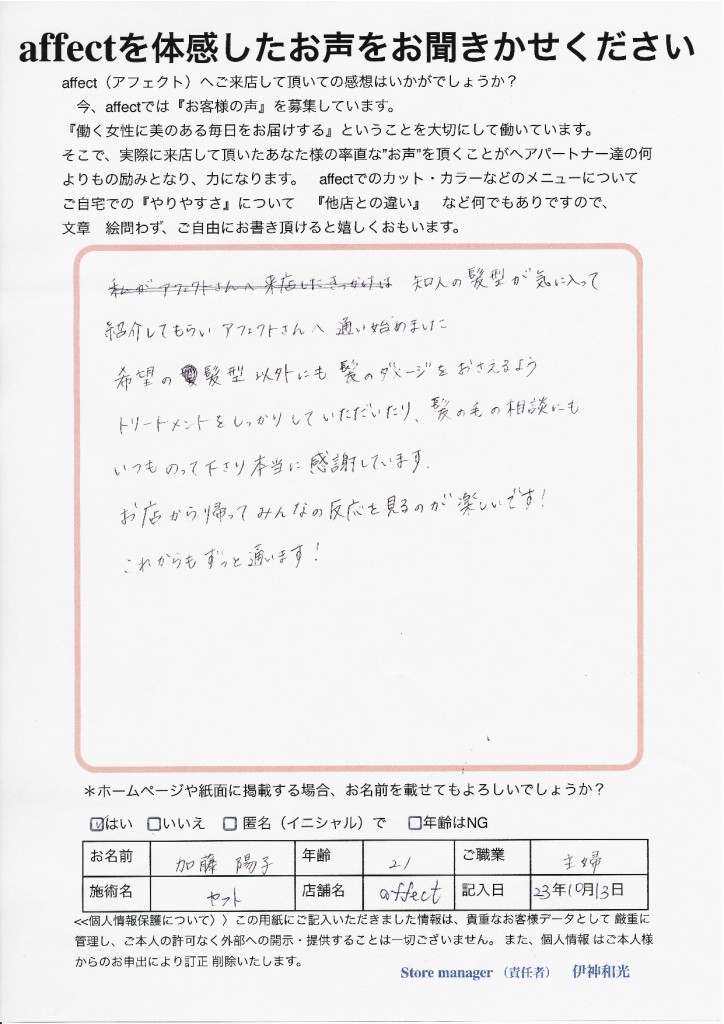 affectを体感したお声をお聞きかせください
affect（アフェクト）へご来店して頂いての感想はいかがでしょうか？
今、affectでは『お客様の声』を募集しています。
『働く女性に美のある毎日をお届けする』ということを大切にして働いています。
そこで、実際に来店して頂いたあなた様の率直な"お声"を頂くことがヘアパートナー達の何
よりもの励みとなり、力になります。 affectでのカット・カラーなどのメニューについて
ご自宅での『やりやすさ』について 『他店との違い』 など何でもありですので、
文章 絵問わず、ご自由にお書き頂けると嬉しくおもいます。
私がアフェクトさんへ来店したきっかけは 知人の髪型が気に入って
紹介してもらい アフェクトさんへ 通い始めました
希望の 髪型 以外にも 髪のダメージを おさえるよう
トリートメントをしっかりしていただいたり、髪の毛の相談にも
いつものって下さり本当に感謝しています.
お店から帰って みんなの反応を見るのが楽しいです!
これからもずっと通います!
＊ホームページや紙面に掲載する場合、お名前を載せてもよろしいでしょうか？
はい いいえ 匿名（イニシャル）で 年齢はNG
お名前 加藤 陽子 年齢 21 ご職業 主婦
施術名 店舗名 affect 記入日 23年10月13日
<<個人情報保護について〉〉この用紙にご記入いただきました情報は、貴重なお客様データとして 厳重に
管理し、ご本人の許可なく外部への開示・提供することは一切ございません。また、個人情報 はご本人様
からのお申出により訂正 削除いたします。
Store manager （責任者） 伊神和光